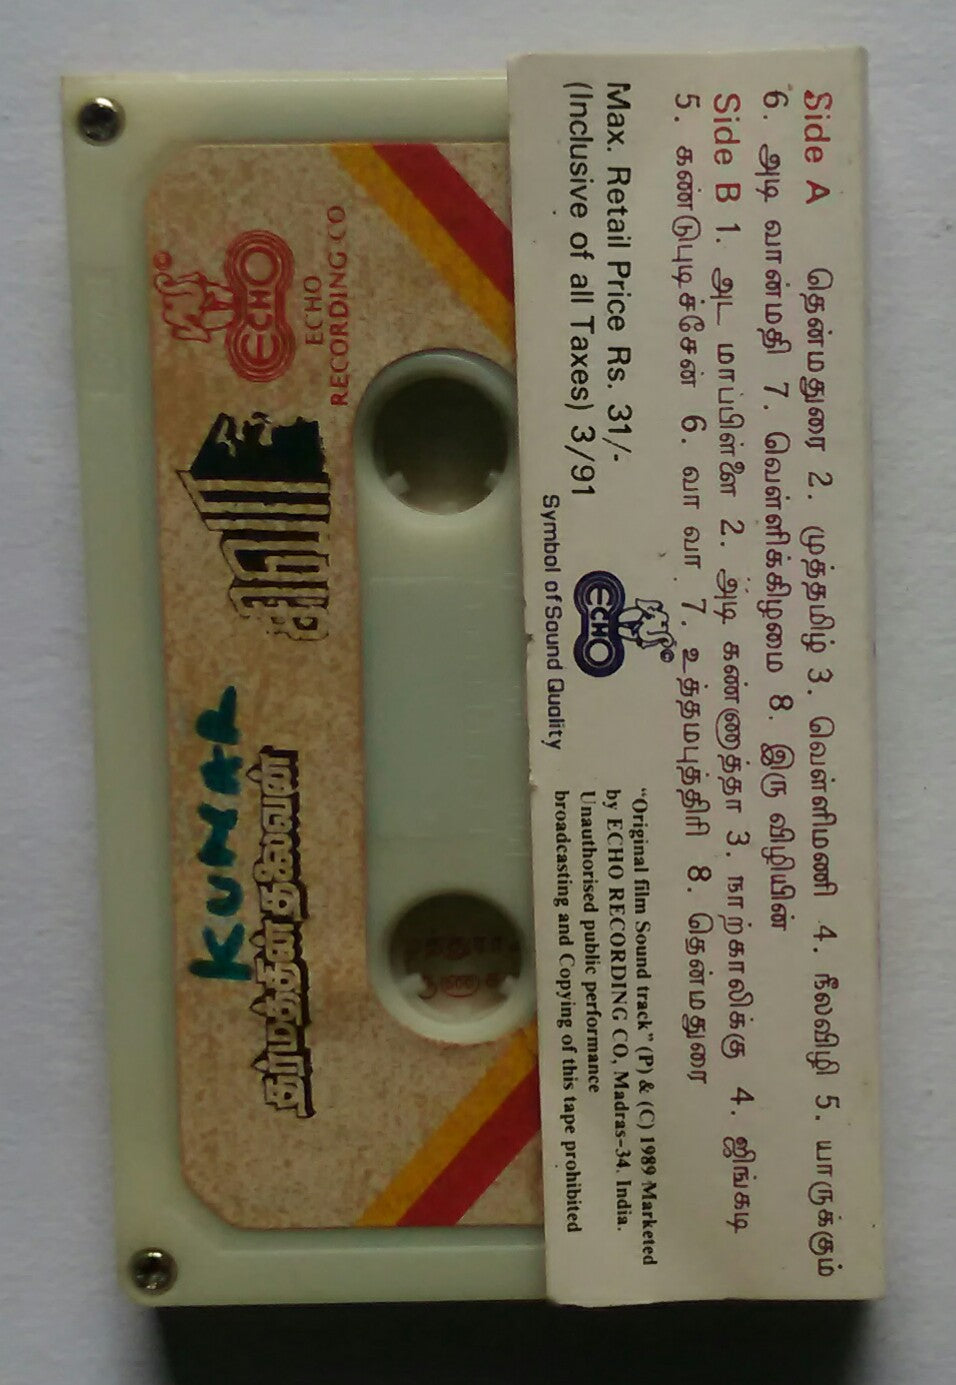 Side A தென்மதுரை 2. முத்தமிழ் 3. வெள்ளிமணி 4. நீலவிழி 5. யாருக்கும்
6. அடி வான்மதி 7. வெள்ளிக்கிழமை 8. இரு விழியின்
Side B 1. அட மாப்பிள்ளை 2. அடி கண்ணாத்தா 3. நாற்காலிக்கு 4. ஜிங்கடி
5. கண்டுபுடிச்சேன் 6. வா வா 7. உத்தமபுத்திரி 8. தென்மதுரை
Max. Retail Price Rs. 31/-
(Inclusive of all Taxes) 3/91
ECHO
Symbol of Sound Quality
"Original film Sound track" (P) & (C) 1989 Marketed
by ECHO RECORDING CO, Madras-34. India.
Unauthorised public performance
broadcasting and Copying of this tape prohibited
ECHO
ECHO
RECORDING CO
சிவா
தர்மத்தின் தலைவன்
KUMAR